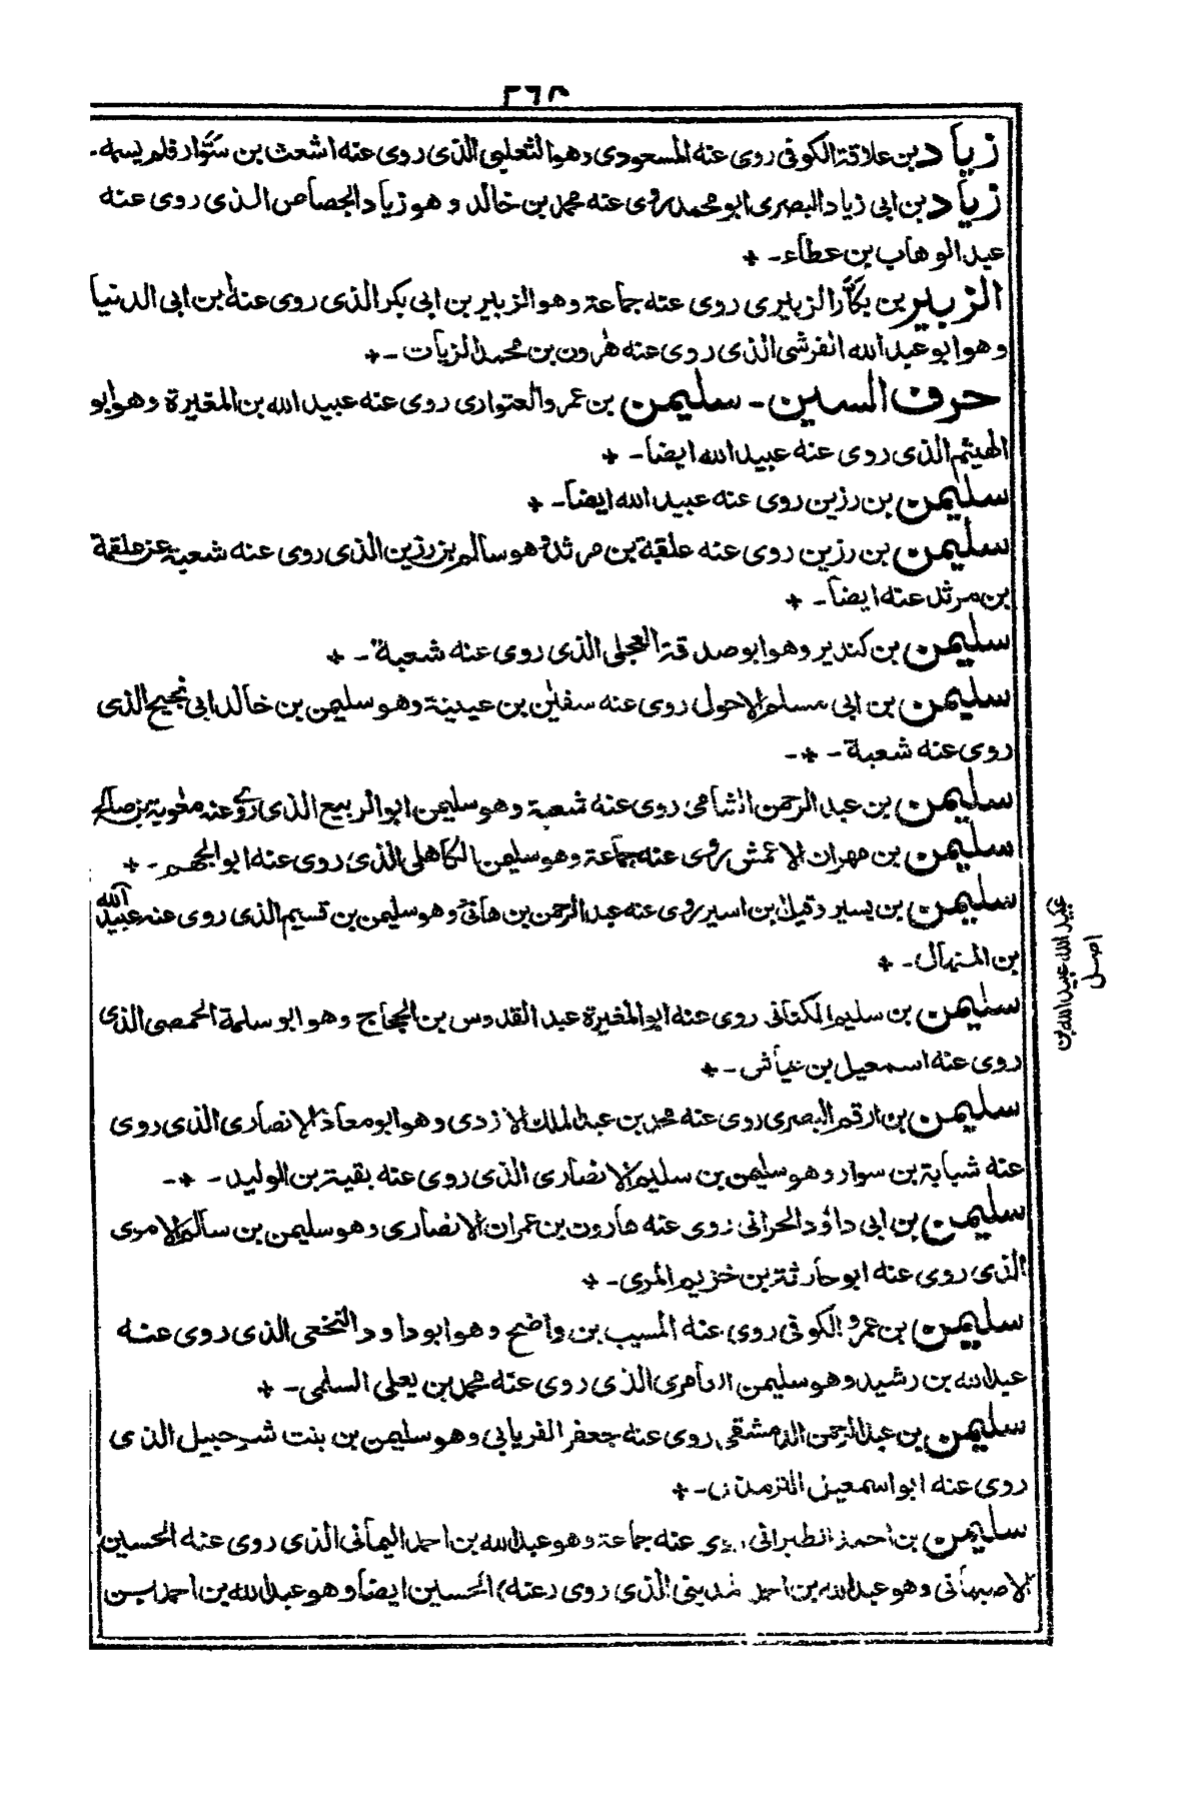 ٣٦٥
زياد بن علاقة الكوفى روى عنه المسعودى وهو الثعلبى الذى روى عنه اشعث بن سوّار فلم يسمه۔
زياد بن ابى زياد البصرى ابو محمد روى عنه محمد بن خالد وهو زياد الجصاص الذى روى عنه
عبد الوهاب بن عطاء۔ +
الزبير بن بكّار الزبيرى روى عنه جماعة وهو الزبير بن ابى بكر الذى روى عنه ابن ابى الدنيا
وهو ابو عبد الله القرشى الذى روى عنه هٰرون بن محمد الزيات۔ +
حرف السين۔ سليمن بن عمرو العتوارى روى عنه عبيد الله بن المغيرة وهو ابو
الهيثم الذى روى عنه عبيد الله ايضا۔ +
سليمن بن رزين روى عنه عبيد الله ايضا۔ +
سليمن بن رزين روى عنه علقمة بن مرثد وهو سالم بن رزين الذى روى عنه شعبة عن علقمة
بن مرثد عنه ايضا۔ +
سليمن بن كندير وهو ابو صدقة العجلى الذى روى عنه شعبة۔ +
سليمن بن ابى مسلم الاحول روى عنه سفيٰن بن عيينة وهو سليمن بن خالد ابى نجيح الذى
روى عنه شعبة۔ +۔
سليمن بن عبد الرحمن الشامى روى عنه شعبة وهو سليمن ابو الربيع الذى روى عنه معٰوية بن صالح
سليمن بن مهران الاعمش روى عنه جماعة وهو سليمن الكاهلى الذى روى عنه ابو الجهم۔ +
سليمن بن يسير وقيل بن اسير روى عنه عبد الرحمن بن هانئ وهو سليمن بن قسيم الذى روى عنه عبيد الله
بن المنهال۔ +
عبيد الله عبيد الله بن
اصل
سليمن بن سليم الكنانى روى عنه ابو المغيرة عبد القدوس بن الحجاج وهو ابو سلمة الحمصى الذى
روى عنه اسمعيل بن عياش۔ +
سليمن بن ارقم البصرى روى عنه محمد بن عبد الملك الازدى وهو ابو معاذ الانصارى الذى روى
عنه شبابة بن سوار وهو سليمن بن سليم الانصارى الذى روى عنه بقية بن الوليد۔ +۔
سليمن بن ابى داؤد الحرانى روى عنه هارون بن عمران الانصارى وهو سليمن بن سالم الاموى
الذى روى عنه ابو حارثة بن خزيم المرى۔ +
سليمن بن عمرو الكوفى روى عنه المسيب بن واضح وهو ابو داود النخعى الذى روى عنه
عبد الله بن رشيد وهو سليمن العامرى الذى روى عنه محمد بن يعلى السلمى۔ +
سليمن بن عبد الرحمن الدمشقى روى عنه جعفر الفريابى وهو سليمن بن بنت شرحبيل الذى
روى عنه ابو اسمعيل الترمذى۔ +
سليمن بن احمد الطبرانى روى عنه جماعة وهو عبد الله بن احمد اليمانى الذى روى عنه الحسين
الاصبهانى وهو عبد الله بن احمد المدينى الذى روى (عنه) الحسين ايضا وهو عبد الله بن احمد ابن